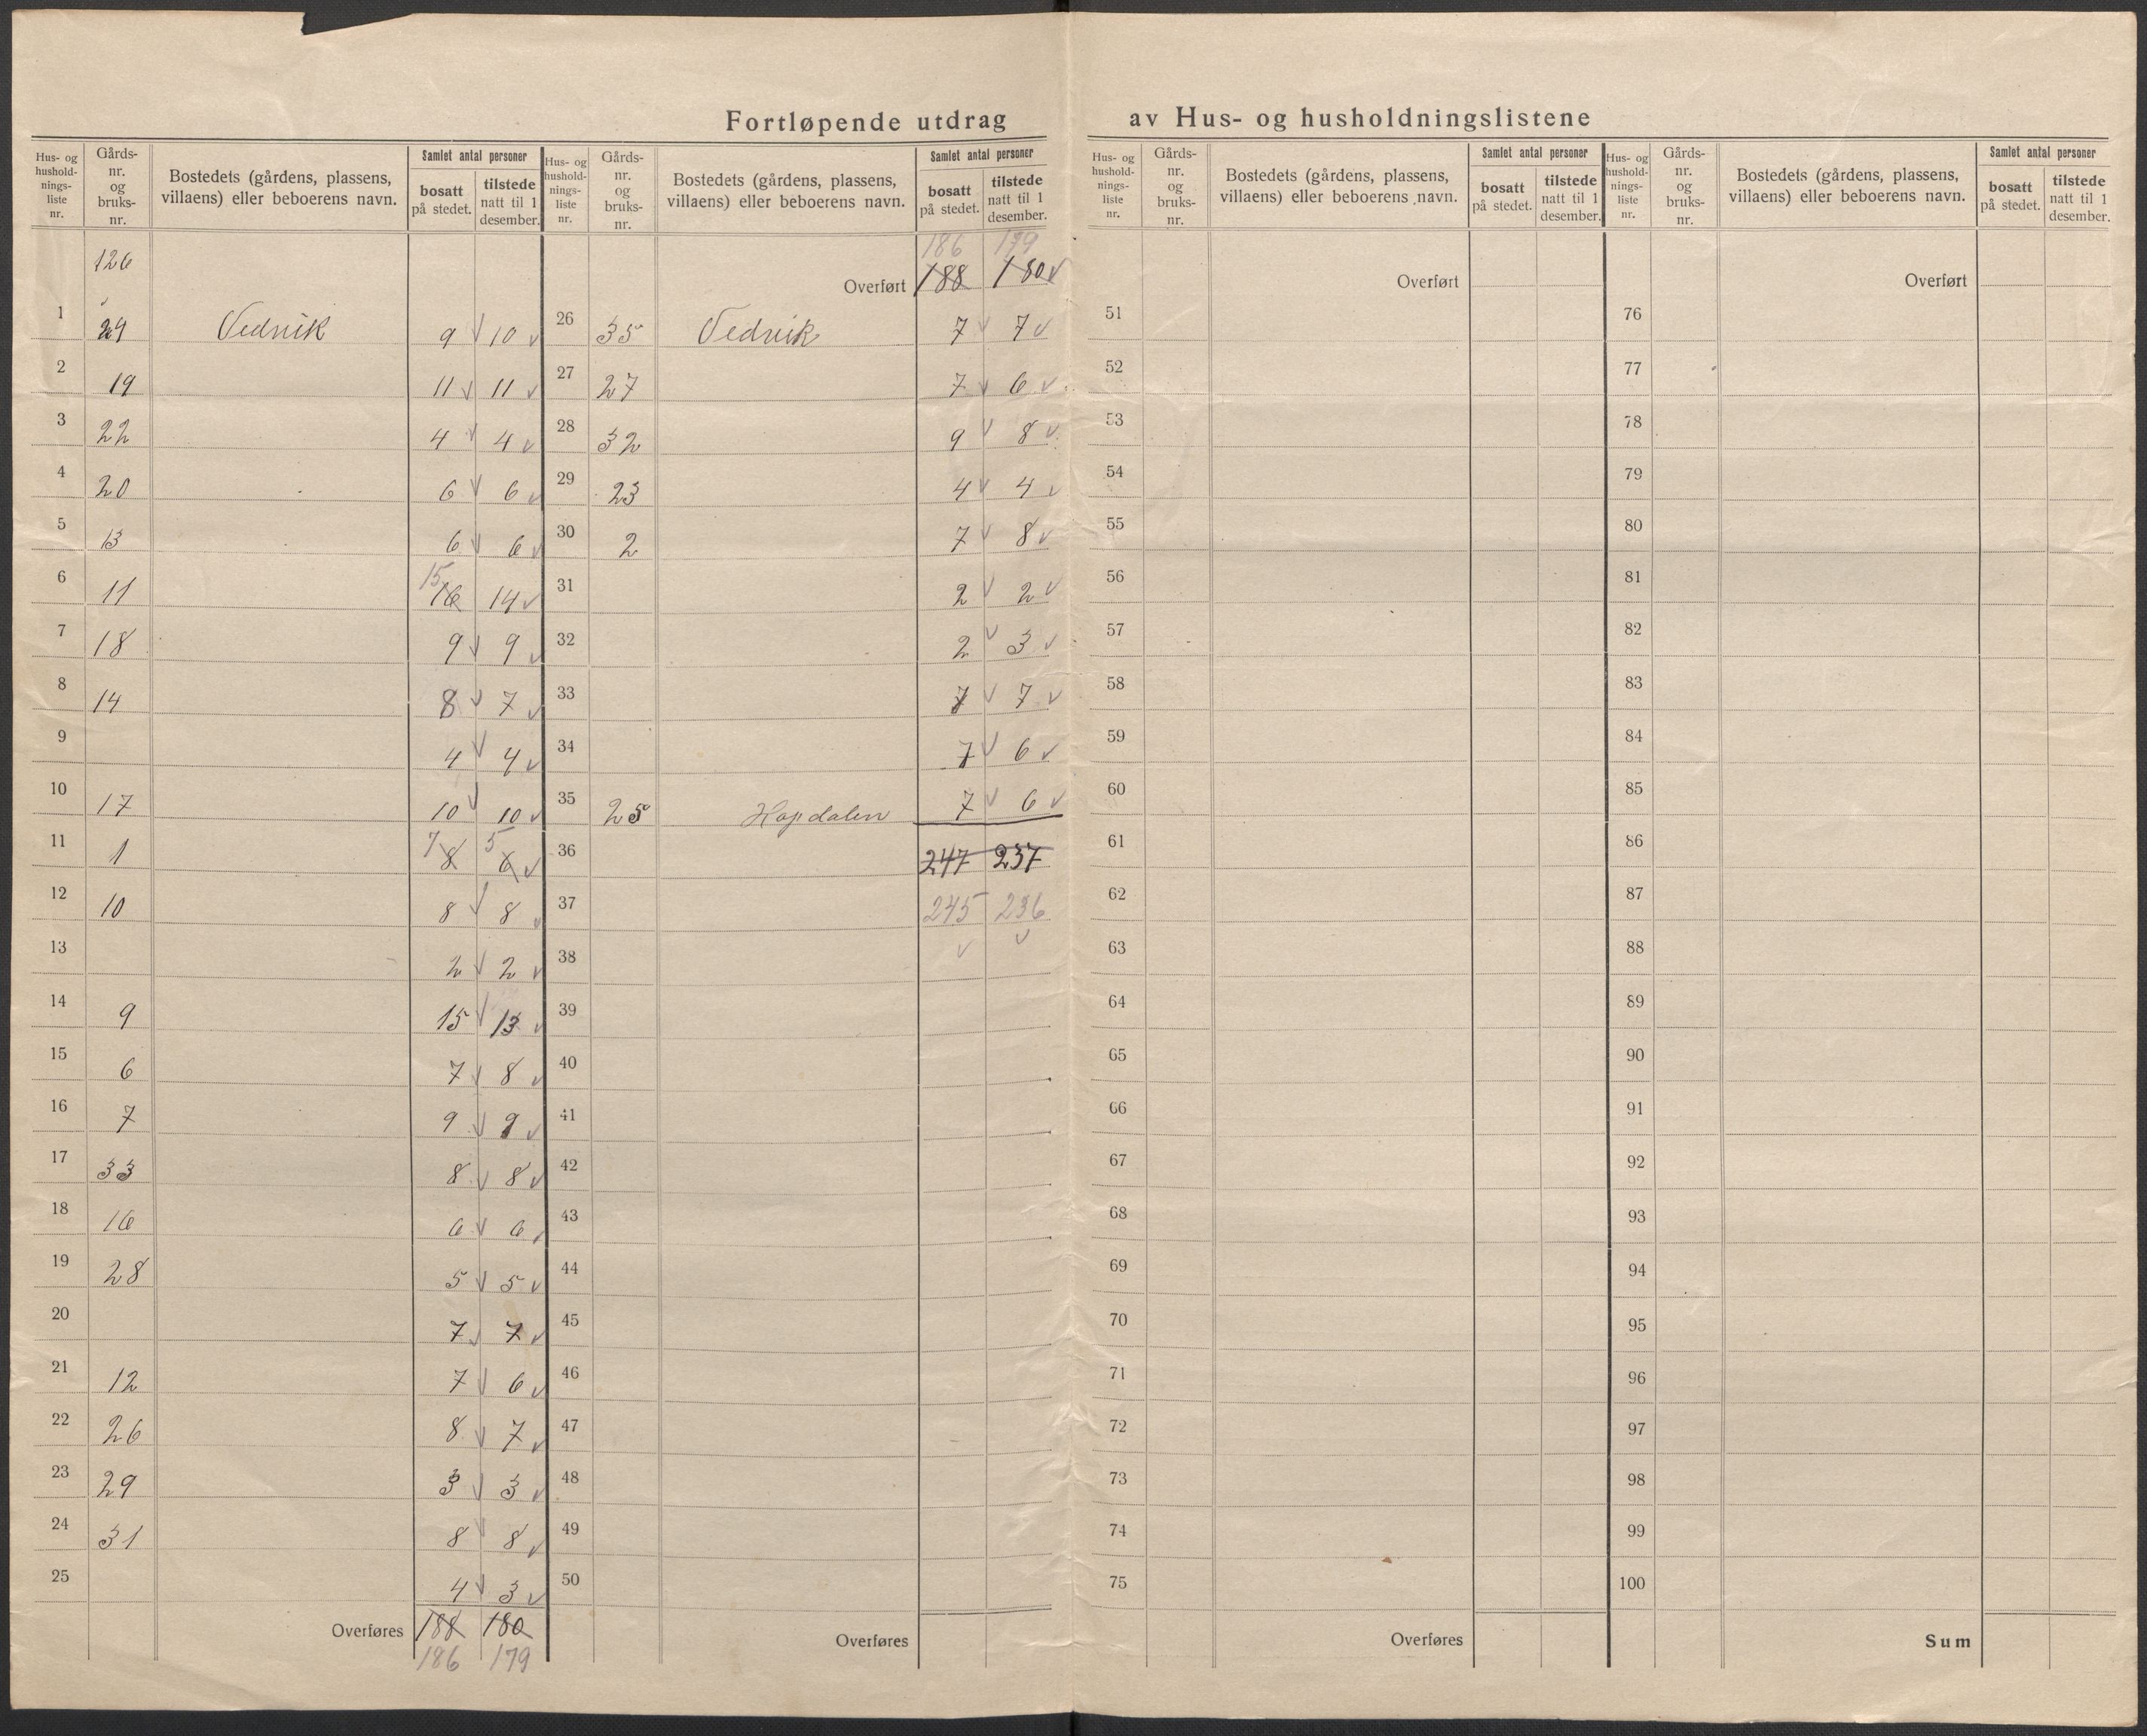 Fortløpende utdrag av Hus- og husholdningslistene
Hus- og hushold- nings- liste nr. | Gårds- nr. og bruks- nr. | Bostedets (gårdens, plassens, villaens) eller beboerens navn. | Samlet antal personer | bosatt på stedet. | tilstede natt til 1 desember.
126
1 24 Vedvik 9 10
2 19 11 11
3 22 4 4
4 20 6 6
5 13 6 6
6 11 15 16 14
7 18 9 9
8 14 8 7
9 4 4
10 17 10 10
11 1 7 8 5 6
12 10 8 8
13 2 2
14 9 15 13
15 6 7 8
16 7 9 9
17 33 8 8
18 16 6 6
19 28 5 5
20 7 7
21 12 7 6
22 26 8 7
23 29 3 3
24 31 8 8
25 4 3
Overføres 188 180
186 179
Hus- og hushold- nings- liste nr. | Gårds- nr. og bruks- nr. | Bostedets (gårdens, plassens, villaens) eller beboerens navn. | Samlet antal personer | bosatt på stedet. | tilstede natt til 1 desember.
186 179
Overført 188 180
26 35 Vedvik 7 7
27 27 7 6
28 32 9 8
29 23 4 4
30 2 7 8
31 2 2
32 2 3
33 7 7
34 7 6
35 25 Hopdalen 7 6
36 247 237
37 245 236
38
39
40
41
42
43
44
45
46
47
48
49
50
Overføres
Hus- og hushold- nings- liste nr. | Gårds- nr. og bruks- nr. | Bostedets (gårdens, plassens, villaens) eller beboerens navn. | Samlet antal personer | bosatt på stedet. | tilstede natt til 1 desember.
Overført
51
52
53
54
55
56
57
58
59
60
61
62
63
64
65
66
67
68
69
70
71
72
73
74
75
Overføres
Hus- og hushold- nings- liste nr. | Gårds- nr. og bruks- nr. | Bostedets (gårdens, plassens, villaens) eller beboerens navn. | Samlet antal personer | bosatt på stedet. | tilstede natt til 1 desember.
Overført
76
77
78
79
80
81
82
83
84
85
86
87
88
89
90
91
92
93
94
95
96
97
98
99
100
Sum